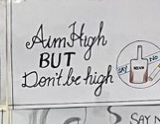 Aim High
BUT
Don't be high
SAY NO
SAY N